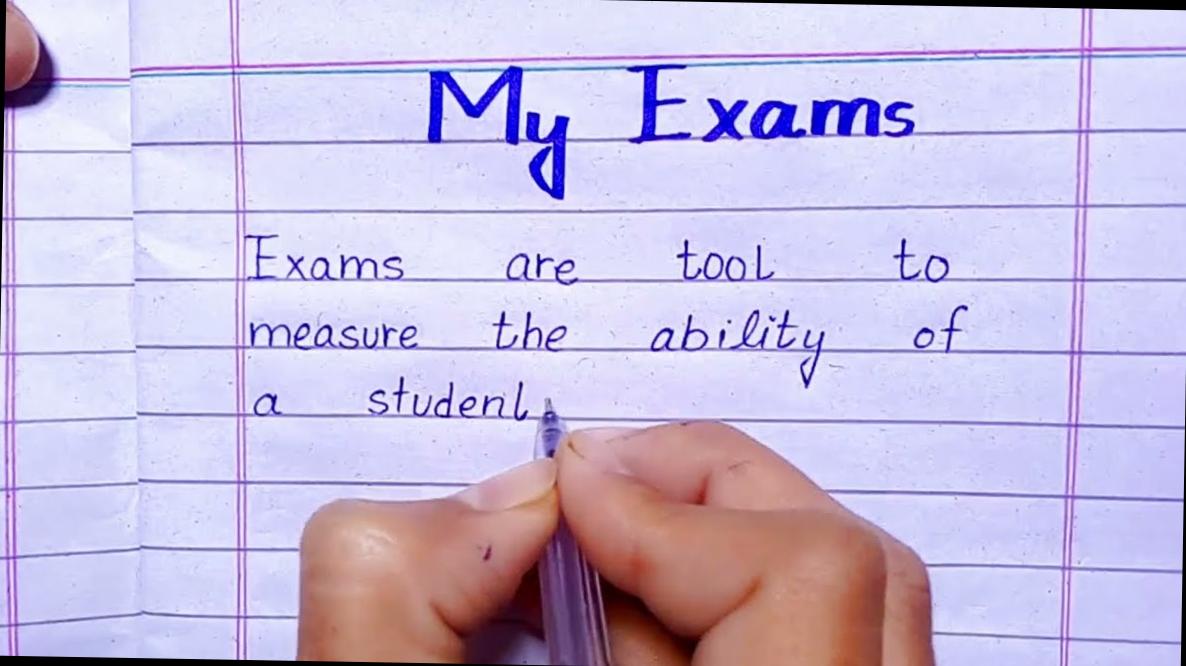 My Exams
Exams are tool to
measure the ability of
a student